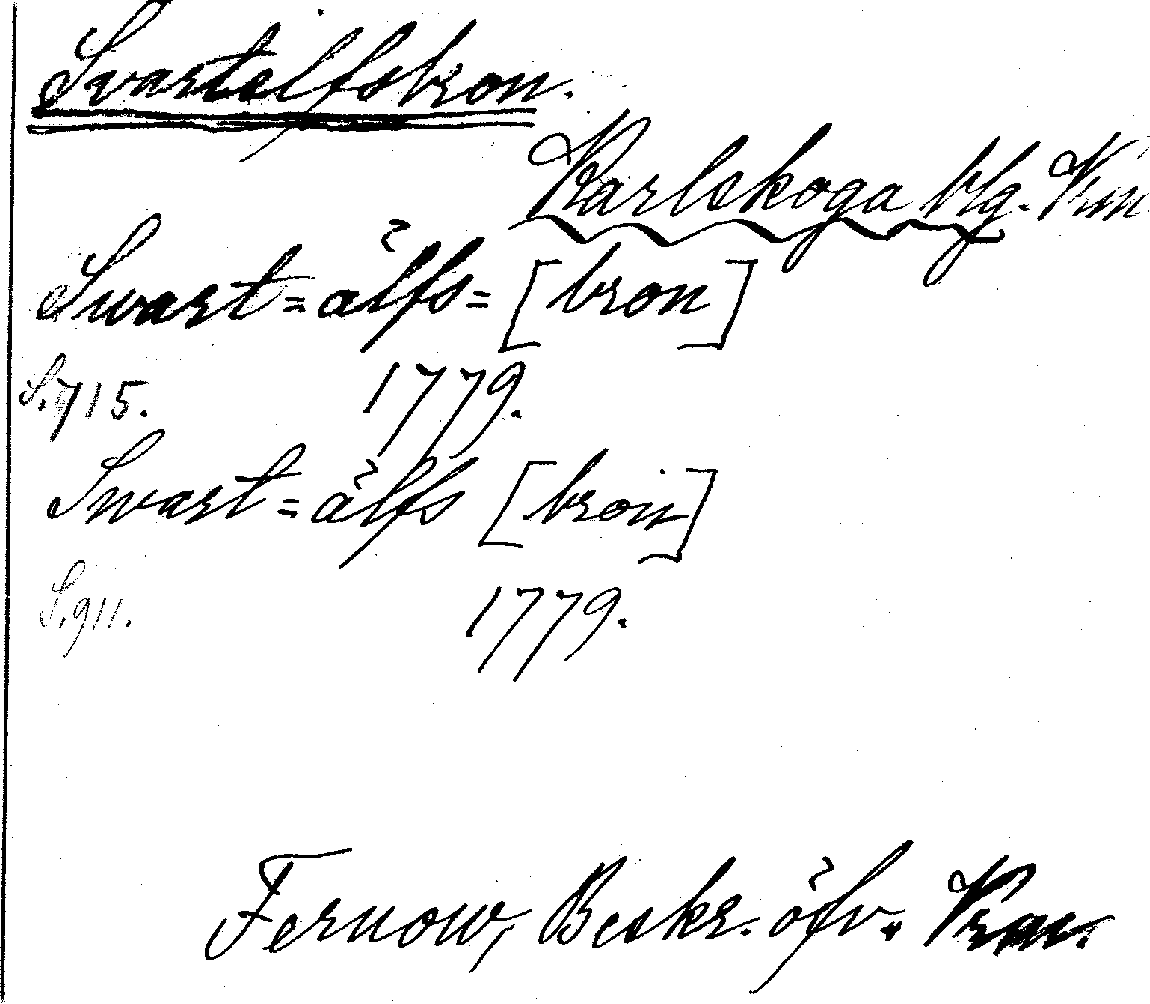 Svartelfsbron.
Karlskoga blg. Vrm.
Swart=älfs=[bron]
S.715. 1779.
Swart=älfs [bron]
S.911. 1779.
Fernow, Beskr. öfv. Vrm.